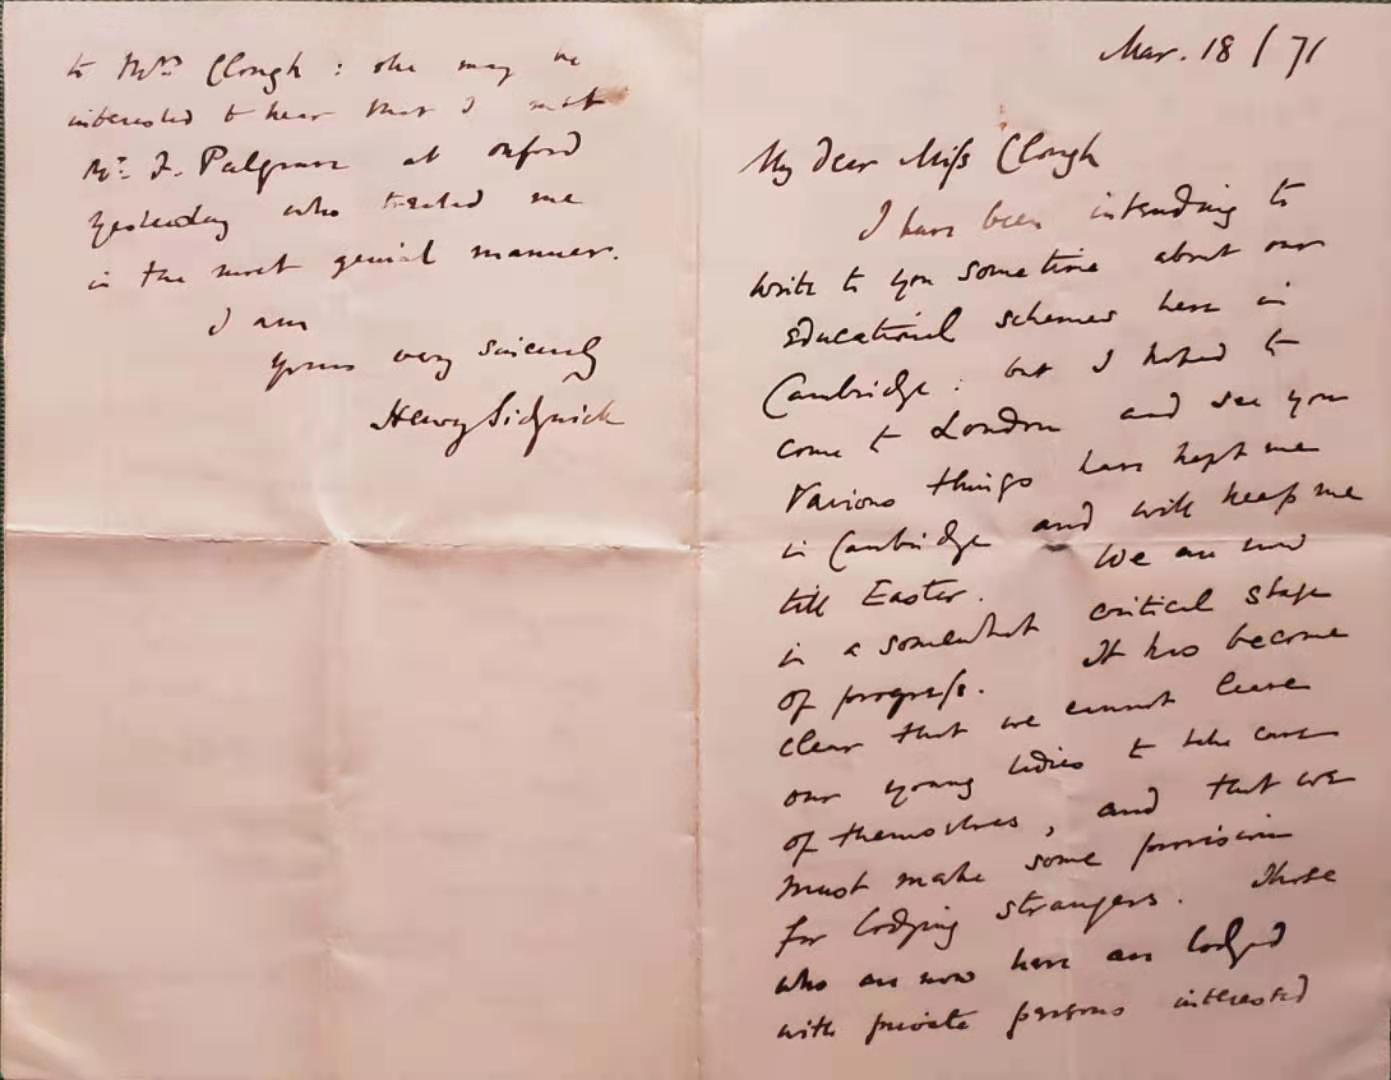 Mar. 18 / 71
My dear Miss Clough
I have been intending to
write to you some time about our
educational schemes here in
Cambridge : but I hoped to
come to London and see you
Various things have kept me
in Cambridge and will keep me
till Easter. We are now
in a somewhat critical stage
of progress. It has become
clear that we cannot leave
our young ladies to take care
of themselves, and that we
must make some provision
for lodging strangers. Those
who are now here are lodged
with private persons interested
to Mrs Clough : she may be
interested to hear that I met
Mr. F. Palgrave at Oxford
yesterday who treated me
in the most genial manner.
I am
yours very sincerely
Henry Sidgwick